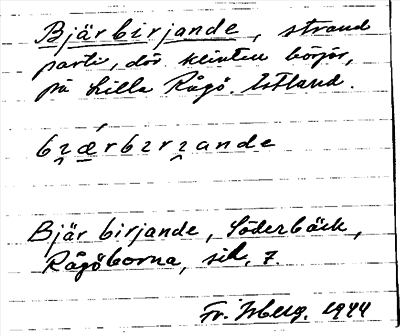 Bjärbirjande, strand
parti, där klinten börjar,
på Lilla Rågö. Estland.
bɪ̯ǽrbɪrɪ̯ande
Bjär birjande, Söderbäck,
Rågöborna, sid. 7.
Fr. Isberg. 1944